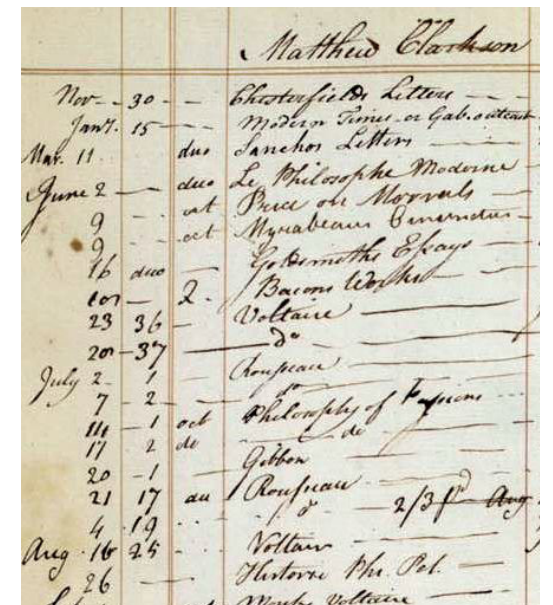 Matthew Clarkson
Nov - - 30 - - Chesterfields Letters
Jany. 15 - - Modern Times or Gab. outcast
Mar. 11 duo Sanchos Letters
June 2 duo Le Philosophe Moderne
9 oct Price on Morrals
9 oct Myrabeaus
16 duo Goldsmiths Essays
2 Bacons Works
23 36 Voltaire
37 do
July 2 1 Rousseau
7 2 do
1 oct Philosophy of
17 2 do do
20 1 Gibbon
21 17 Rousseau
4 19 do 2/3 pd Aug
Aug. 16 25 Voltair
26 Histoire Phi. Pol.
Voltaire